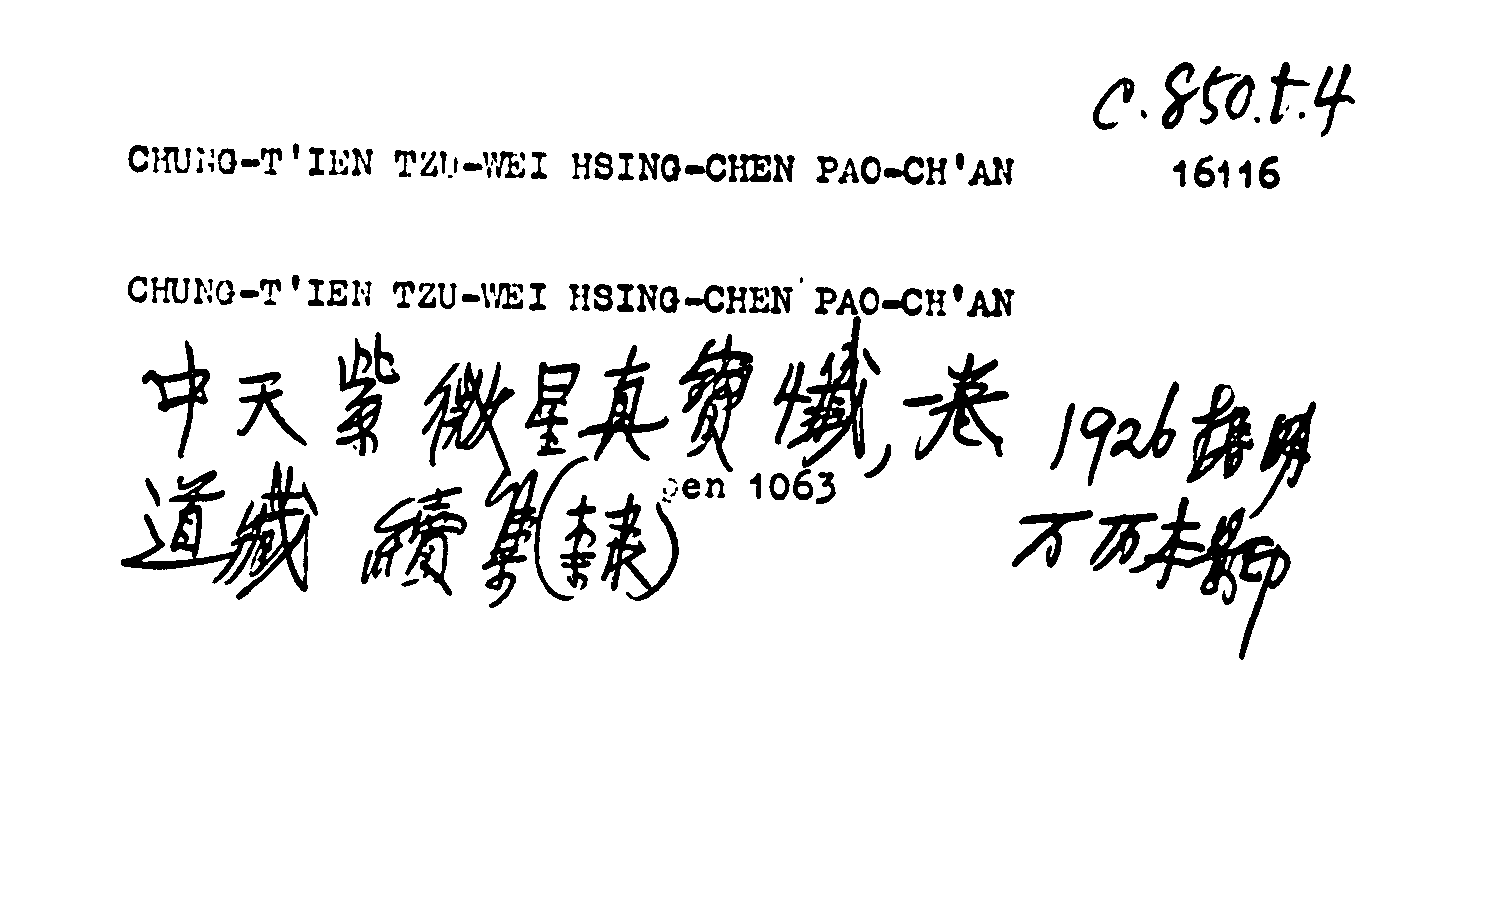 C.850.t.4
CHUNG-T'IEN TZU-WEI HSING-CHEN PAO-CH'AN 16116
CHUNG-T'IEN TZU-WEI HSING-CHEN PAO-CH'AN
中天紫微星真寶懺,一卷 1926 據明
道藏 續集(隸) pen 1063
万历本影印